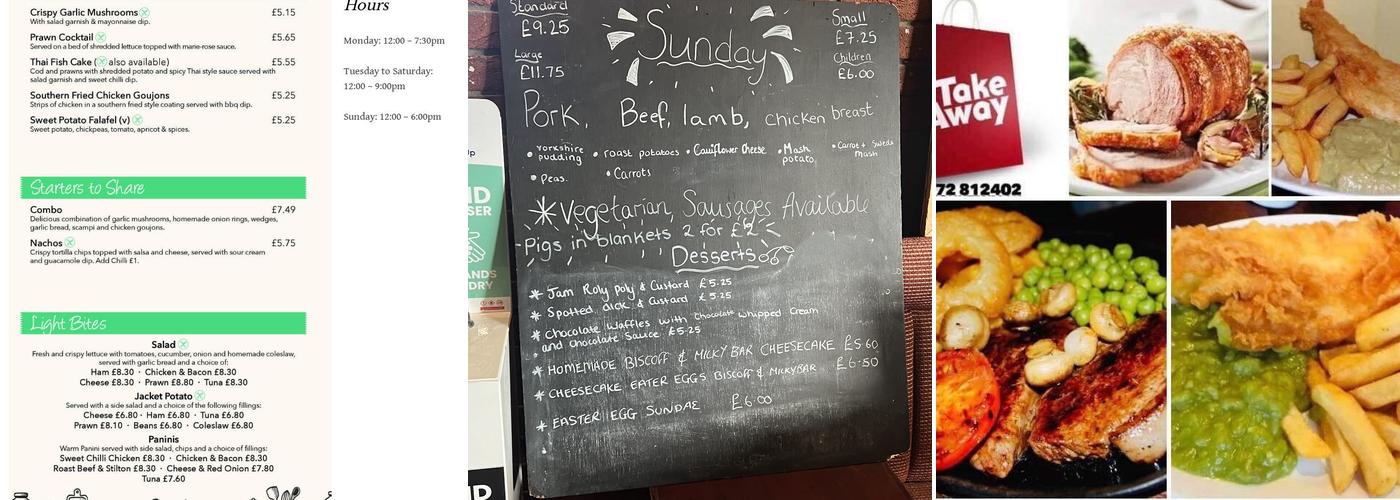 Crispy Garlic Mushrooms £5.15
With salad garnish & mayonnaise dip.
Prawn Cocktail £5.65
Served on a bed of shredded lettuce topped with marie-rose sauce.
Thai Fish Cake ( also available) £5.55
Cod and prawns with shredded potato and spicy Thai style sauce served with
salad garnish and sweet chilli dip.
Southern Fried Chicken Goujons £5.25
Strips of chicken in a southern fried style coating served with bbq dip.
Sweet Potato Falafel (v) £5.25
Sweet potato, chickpeas, tomato, apricot & spices.
Starters to Share
Combo £7.49
Delicious combination of garlic mushrooms, homemade onion rings, wedges,
garlic bread, scampi and chicken goujons.
Nachos £5.75
Crispy tortilla chips topped with salsa and cheese, served with sour cream
and guacamole dip. Add Chilli £1.
Light Bites
Salad
Fresh and crispy lettuce with tomatoes, cucumber, onion and homemade coleslaw,
served with garlic bread and a choice of:
Ham £8.30 · Chicken & Bacon £8.30
Cheese £8.30 · Prawn £8.80 · Tuna £8.30
Jacket Potato
Served with a side salad and a choice of the following fillings:
Cheese £6.80 · Ham £6.80 · Tuna £6.80
Prawn £8.10 · Beans £6.80 · Coleslaw £6.80
Paninis
Warm Panini served with side salad, chips and a choice of fillings:
Sweet Chilli Chicken £8.30 · Chicken & Bacon £8.30
Roast Beef & Stilton £8.30 · Cheese & Red Onion £7.80
Tuna £7.60
Hours
Monday: 12:00 – 7:30pm
Tuesday to Saturday:
12:00 – 9:00pm
Sunday: 12:00 – 6:00pm
Standard
£9.25
Large
£11.75
Sunday
Small
£7.25
Children
£6.00
Pork, Beef, lamb, chicken breast
• Yorkshire pudding • roast potatoes • Cauliflower Cheese • Mash potato • Carrot + Swede mash
• Peas. • Carrots
* Vegetarian Sausages Available
Pigs in blankets 2 for £2
Desserts
* Jam Roly Poly & Custard £5.25
* Spotted dick & Custard £5.25
* Chocolate Waffles with Chocolate whipped Cream
and Chocolate Sauce £5.25
* HOMEMADE BISCOFF & MILKY BAR CHEESECAKE £5.60
* CHEESECAKE EATER EGGS BISCOFF & MILKYBAR £6.50
* EASTER EGG SUNDAE £6.00
Take
Away
72 812402